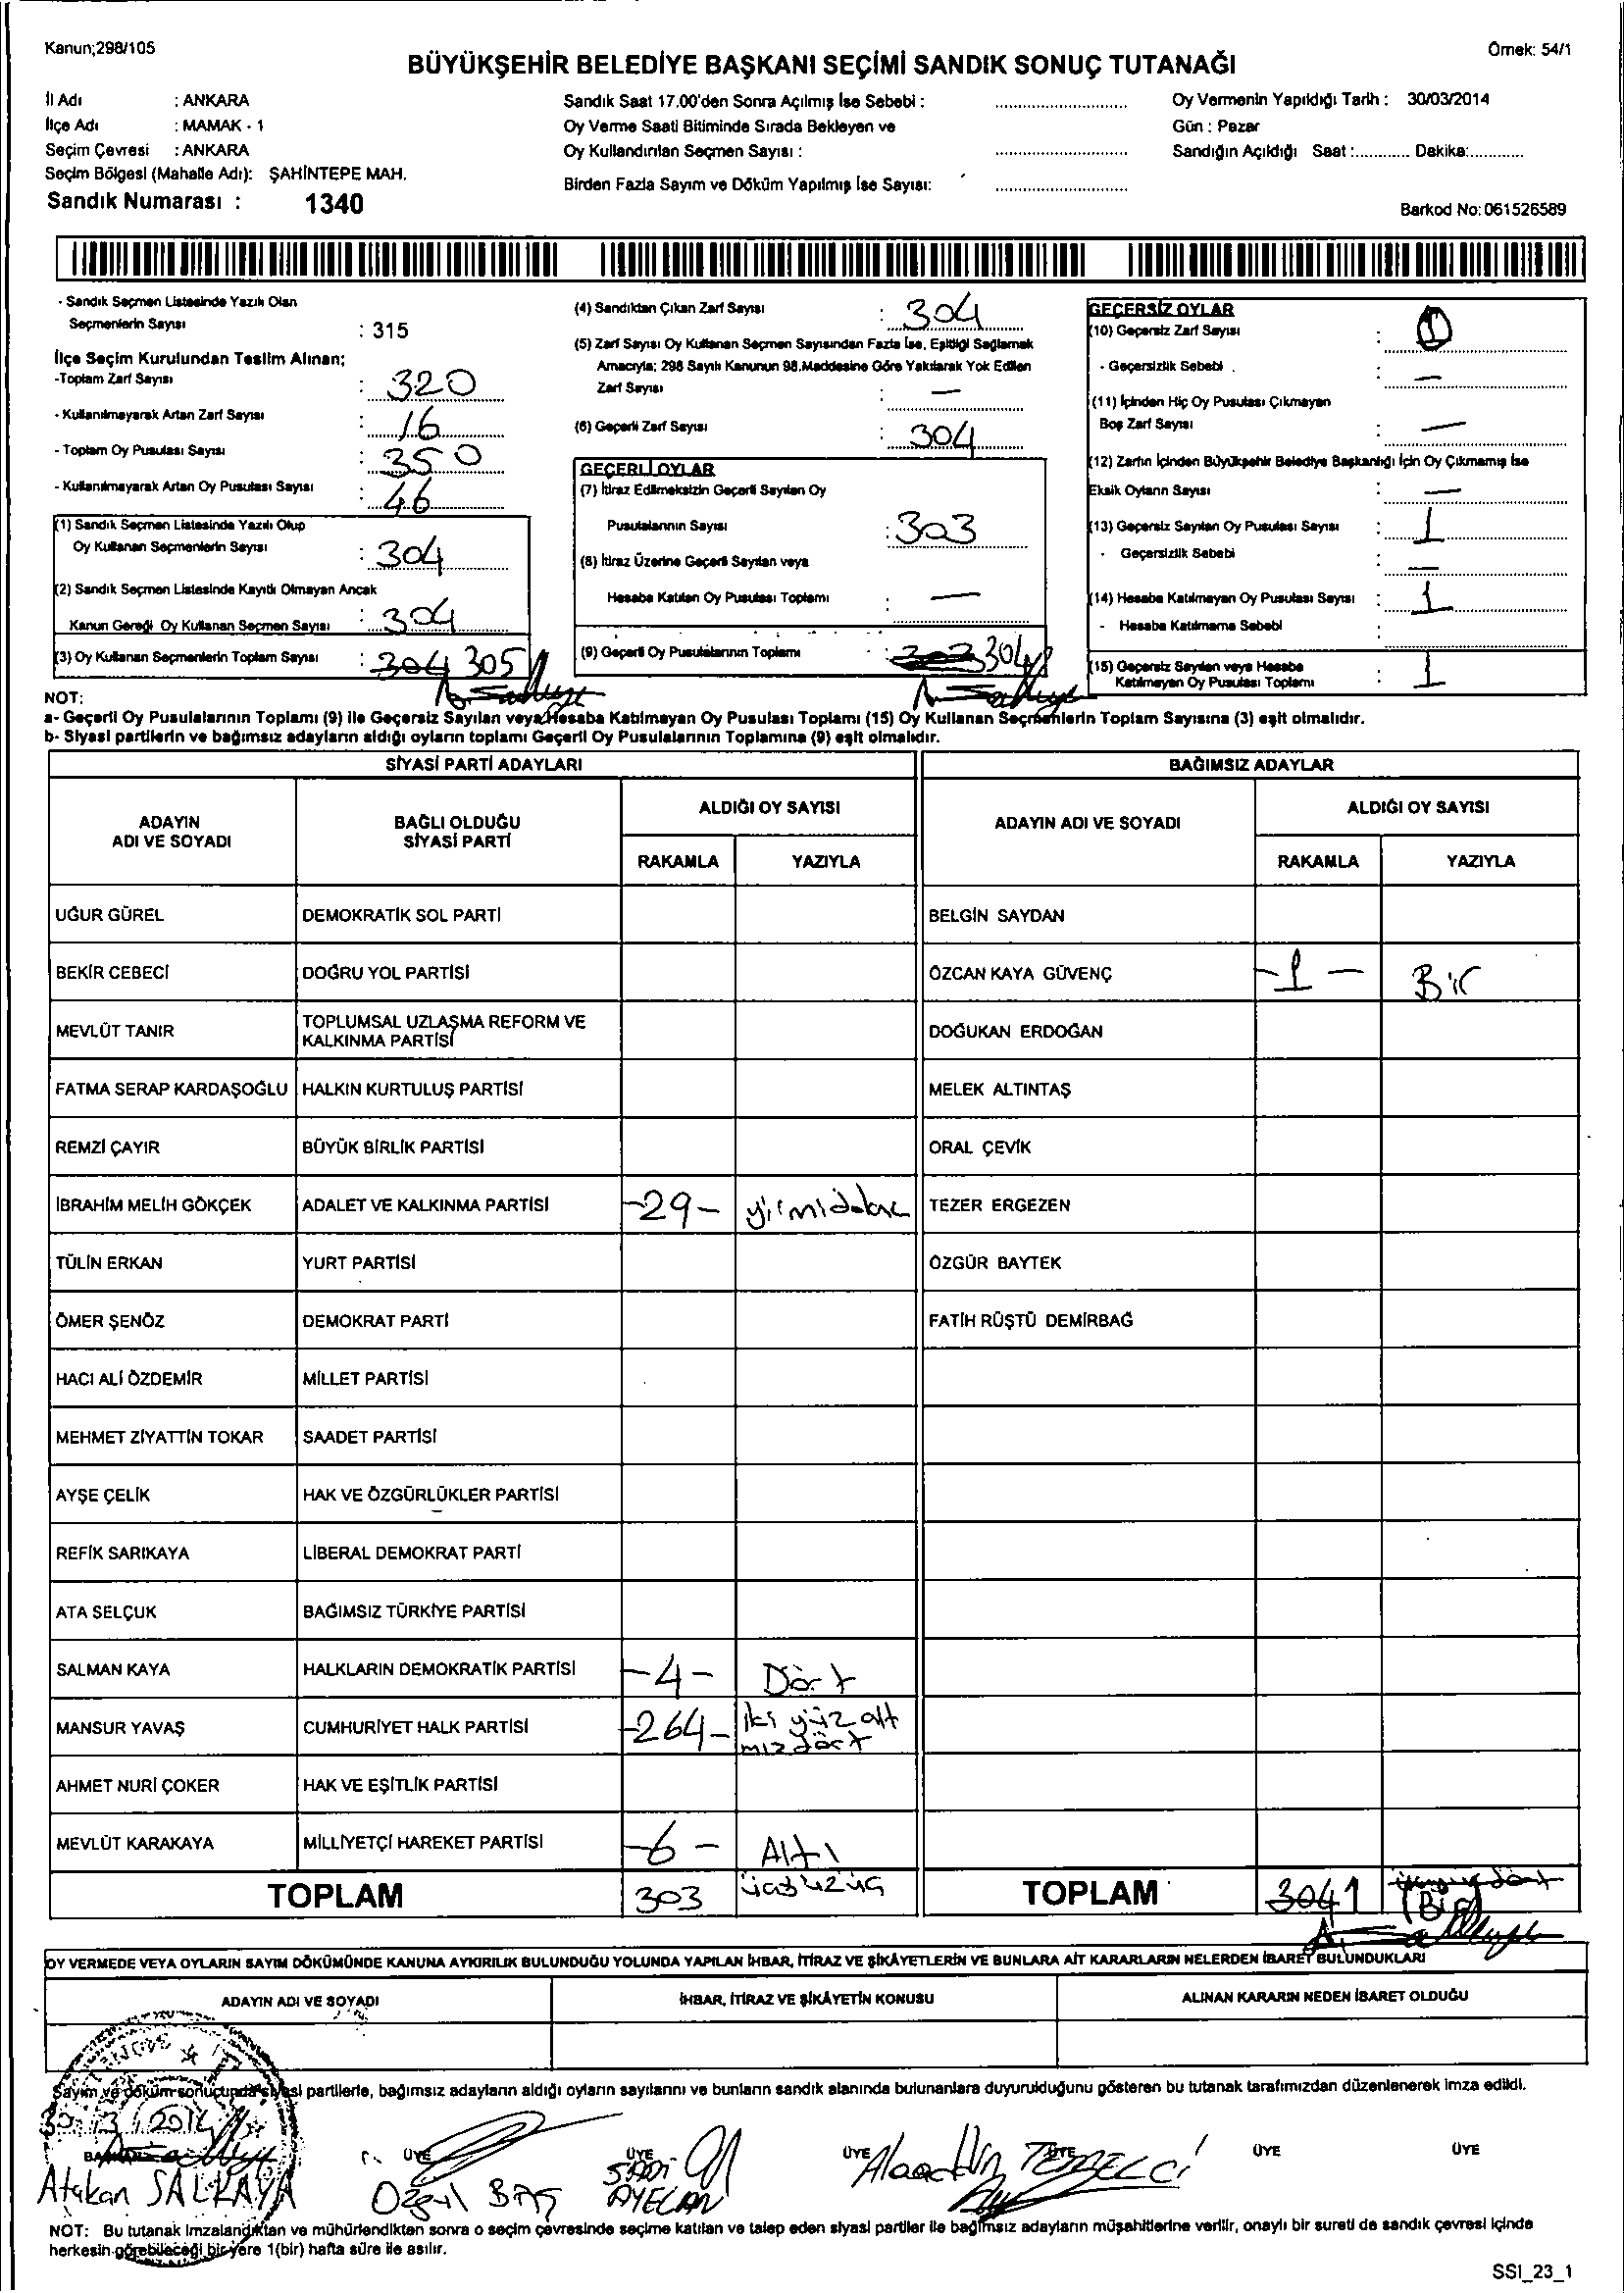 Kanun;298/105
Örnek: 54/1
BÜYÜKŞEHİR BELEDİYE BAŞKANI SEÇİMİ SANDIK SONUÇ TUTANAĞI
İl Adı : ANKARA
İlçe Adı : MAMAK - 1
Seçim Çevresi : ANKARA
Seçim Bölgesi (Mahalle Adı): ŞAHİNTEPE MAH.
Sandık Numarası : 1340
Sandık Saat 17.00'den Sonra Açılmış İse Sebebi : ............
Oy Verme Saati Bitiminde Sırada Bekleyen ve
Oy Kullandırılan Seçmen Sayısı : ............
Birden Fazla Sayım ve Döküm Yapılmış İse Sayısı: ............
Oy Vermenin Yapıldığı Tarih : 30/03/2014
Gün : Pazar
Sandığın Açıldığı Saat :............ Dakika:............
Barkod No: 061526589
- Sandık Seçmen Listesinde Yazılı Olan
Seçmenlerin Sayısı : 315
İlçe Seçim Kurulundan Teslim Alınan;
-Toplam Zarf Sayısı : 320
- Kullanılmayarak Artan Zarf Sayısı : 16
- Toplam Oy Pusulası Sayısı : 350
- Kullanılmayarak Artan Oy Pusulası Sayısı : 46
(1) Sandık Seçmen Listesinde Yazılı Olup
Oy Kullanan Seçmenlerin Sayısı : 304
(2) Sandık Seçmen Listesinde Kayıtlı Olmayan Ancak
Kanun Gereği Oy Kullanan Seçmen Sayısı : 304
(3) Oy Kullanan Seçmenlerin Toplam Sayısı : 304 305
(4) Sandıktan Çıkan Zarf Sayısı : 304
(5) Zarf Sayısı Oy Kullanan Seçmen Sayısından Fazla İse, Eşitliği Sağlamak
Amacıyla; 298 Sayılı Kanunun 98.Maddesine Göre Yakılarak Yok Edilen
Zarf Sayısı : —
(6) Geçerli Zarf Sayısı : 304
GEÇERLİ OYLAR
(7) İtiraz Edilmeksizin Geçerli Sayılan Oy
Pusulalarının Sayısı : 303
(8) İtiraz Üzerine Geçerli Sayılan veya
Hesaba Katılan Oy Pusulası Toplamı : —
(9) Geçerli Oy Pusulalarının Toplamı : 303 304
GEÇERSİZ OYLAR
(10) Geçersiz Zarf Sayısı :
- Geçersizlik Sebebi : —
(11) İçinden Hiç Oy Pusulası Çıkmayan
Boş Zarf Sayısı : —
(12) Zarfın İçinden Büyükşehir Belediye Başkanlığı İçin Oy Çıkmamış İse
Eksik Oyların Sayısı : —
(13) Geçersiz Sayılan Oy Pusulası Sayısı : 1
- Geçersizlik Sebebi : —
(14) Hesaba Katılmayan Oy Pusulası Sayısı : 1
- Hesaba Katılmama Sebebi :
(15) Geçersiz Sayılan veya Hesaba
Katılmayan Oy Pusulası Toplamı : 1
NOT:
a- Geçerli Oy Pusulalarının Toplamı (9) ile Geçersiz Sayılan veya Hesaba Katılmayan Oy Pusulası Toplamı (15) Oy Kullanan Seçmenlerin Toplam Sayısına (3) eşit olmalıdır.
b- Siyasi partilerin ve bağımsız adayların aldığı oyların toplamı Geçerli Oy Pusulalarının Toplamına (9) eşit olmalıdır.
SİYASİ PARTİ ADAYLARI
BAĞIMSIZ ADAYLAR
ADAYIN ADI VE SOYADI
BAĞLI OLDUĞU SİYASİ PARTİ
ALDIĞI OY SAYISI
RAKAMLA YAZIYLA
ADAYIN ADI VE SOYADI
ALDIĞI OY SAYISI
RAKAMLA YAZIYLA
UĞUR GÜREL DEMOKRATİK SOL PARTİ BELGİN SAYDAN
BEKİR CEBECİ DOĞRU YOL PARTİSİ ÖZCAN KAYA GÜVENÇ -1- Bir
MEVLÜT TANIR TOPLUMSAL UZLAŞMA REFORM VE KALKINMA PARTİSİ DOĞUKAN ERDOĞAN
FATMA SERAP KARDAŞOĞLU HALKIN KURTULUŞ PARTİSİ MELEK ALTINTAŞ
REMZİ ÇAYIR BÜYÜK BİRLİK PARTİSİ ORAL ÇEVİK
İBRAHİM MELİH GÖKÇEK ADALET VE KALKINMA PARTİSİ -29- yirmidokuz TEZER ERGEZEN
TÜLİN ERKAN YURT PARTİSİ ÖZGÜR BAYTEK
ÖMER ŞENÖZ DEMOKRAT PARTİ FATİH RÜŞTÜ DEMİRBAĞ
HACI ALİ ÖZDEMİR MİLLET PARTİSİ
MEHMET ZİYATTİN TOKAR SAADET PARTİSİ
AYŞE ÇELİK HAK VE ÖZGÜRLÜKLER PARTİSİ
REFİK SARIKAYA LİBERAL DEMOKRAT PARTİ
ATA SELÇUK BAĞIMSIZ TÜRKİYE PARTİSİ
SALMAN KAYA HALKLARIN DEMOKRATİK PARTİSİ -4- Dört
MANSUR YAVAŞ CUMHURİYET HALK PARTİSİ -264- iki yüz alt
mız dört
AHMET NURİ ÇOKER HAK VE EŞİTLİK PARTİSİ
MEVLÜT KARAKAYA MİLLİYETÇİ HAREKET PARTİSİ -6- Altı
TOPLAM 303 üçyüzüç TOPLAM 304 1 üçyüzdört (Bir)
OY VERMEDE VEYA OYLARIN SAYIM DÖKÜMÜNDE KANUNA AYKIRILIK BULUNDUĞU YOLUNDA YAPILAN İHBAR, İTİRAZ VE ŞİKÂYETLERİN VE BUNLARA AİT KARARLARIN NELERDEN İBARET BULUNDUKLARI
ADAYIN ADI VE SOYADI
İHBAR, İTİRAZ VE ŞİKÂYETİN KONUSU
ALINAN KARARIN NEDEN İBARET OLDUĞU
Sayım ve döküm sonucunda siyasi partilerle, bağımsız adayların aldığı oyların sayılarını ve bunların sandık alanında bulunanlara duyurulduğunu gösteren bu tutanak tarafımızdan düzenlenerek imza edildi.
30/3/2014
BAŞKAN ÜYE ÜYE ÜYE ÜYE ÜYE ÜYE
Atakan SALKAYA Özgül BAŞ SADİ AYECAN Alaaddin TEMBELCİ
NOT: Bu tutanak imzalandıktan ve mühürlendikten sonra o seçim çevresinde seçime katılan ve talep eden siyasi partiler ile bağımsız adayların müşahitlerine verilir, onaylı bir sureti de sandık çevresi içinde
herkesin görebileceği bir yere 1(bir) hafta süre ile asılır.
SSI_23_1